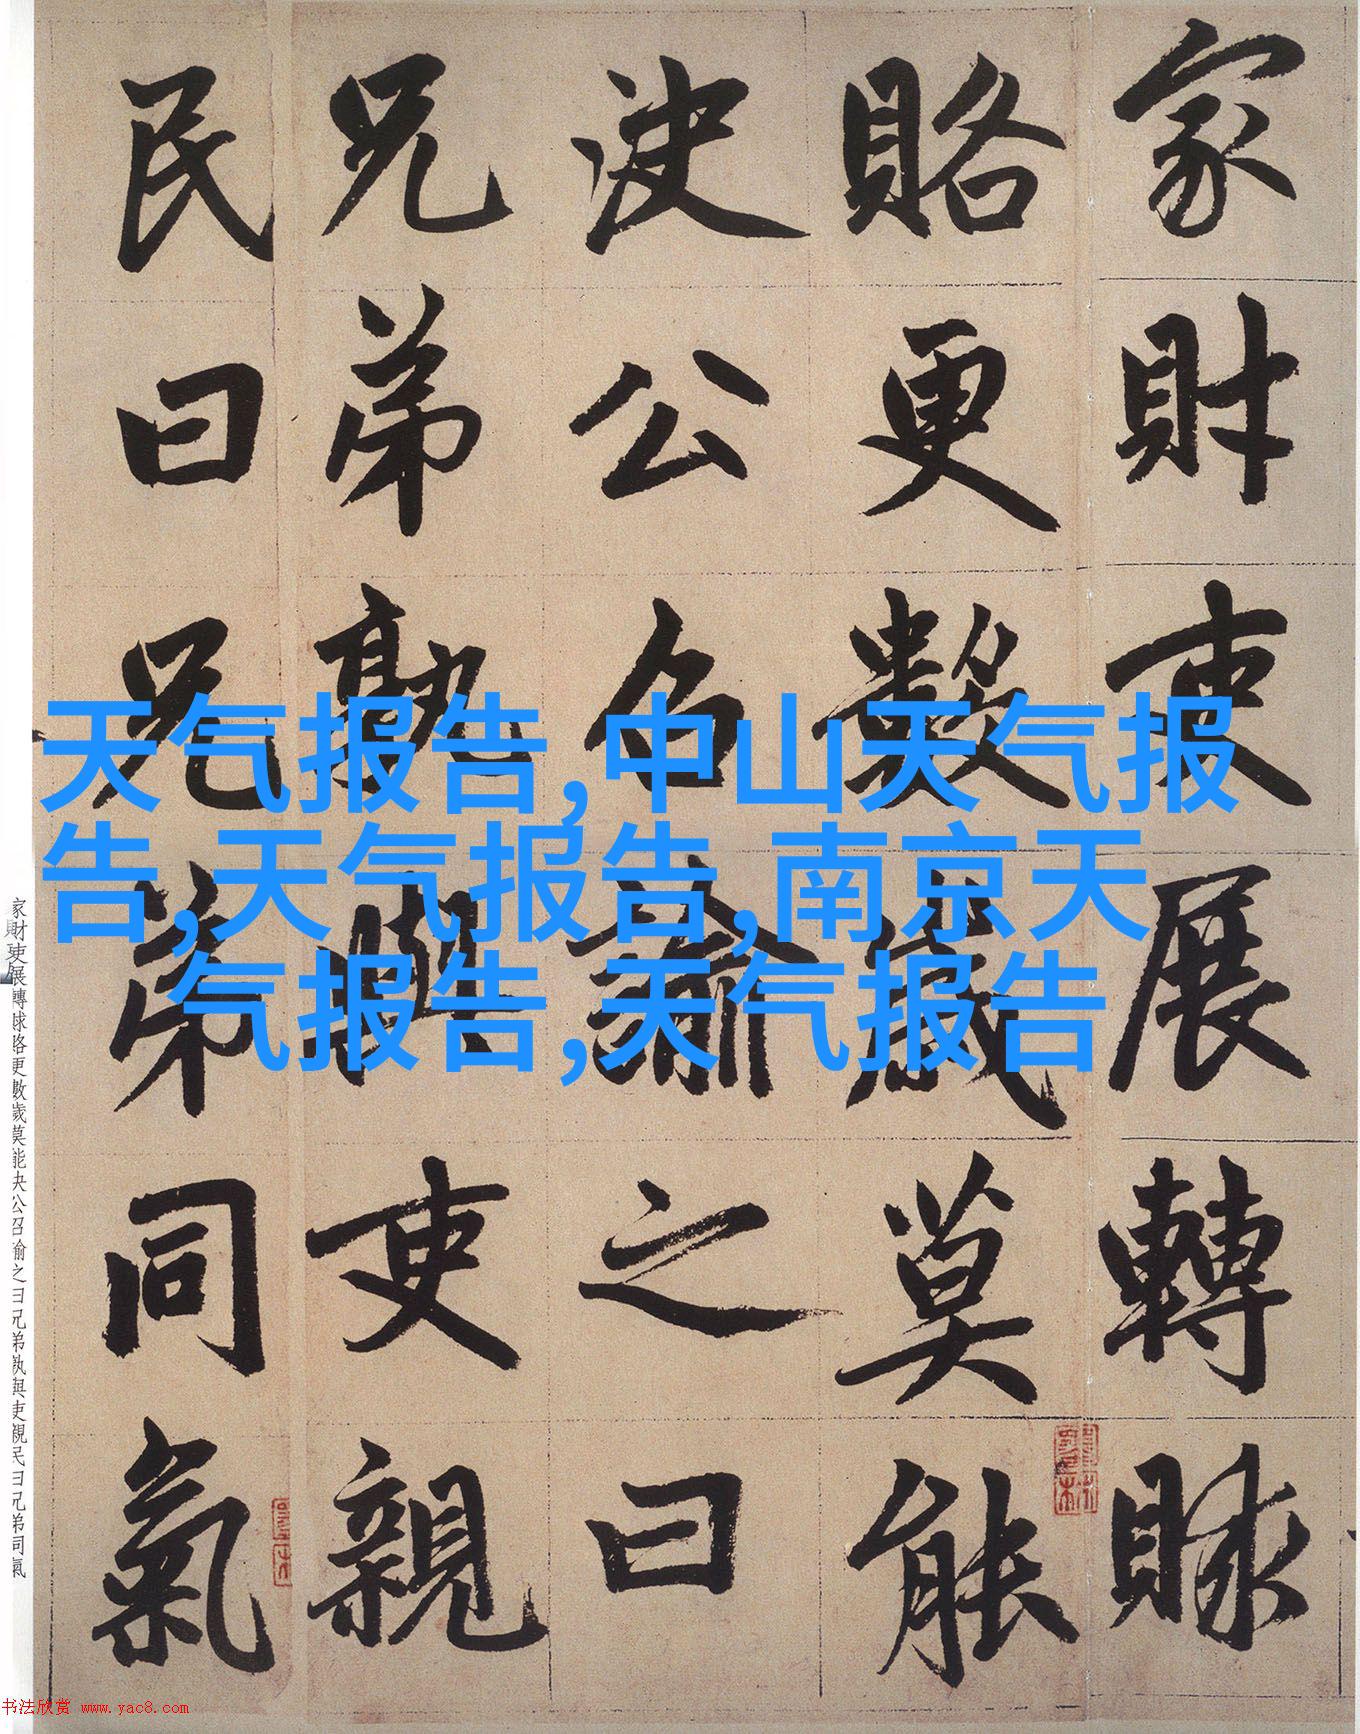 家財吏展轉賕
賂更數歲莫能
決公召諭之曰
兄弟孰與吏親
民曰兄弟同氣
天气报告,中山天气报
告,天气报告,南京天
气报告,天气报告
家財吏展轉賕賂更數歲莫能決公召諭之曰兄弟孰與吏親民曰兄弟同氣
书法欣赏 www.yac8.com